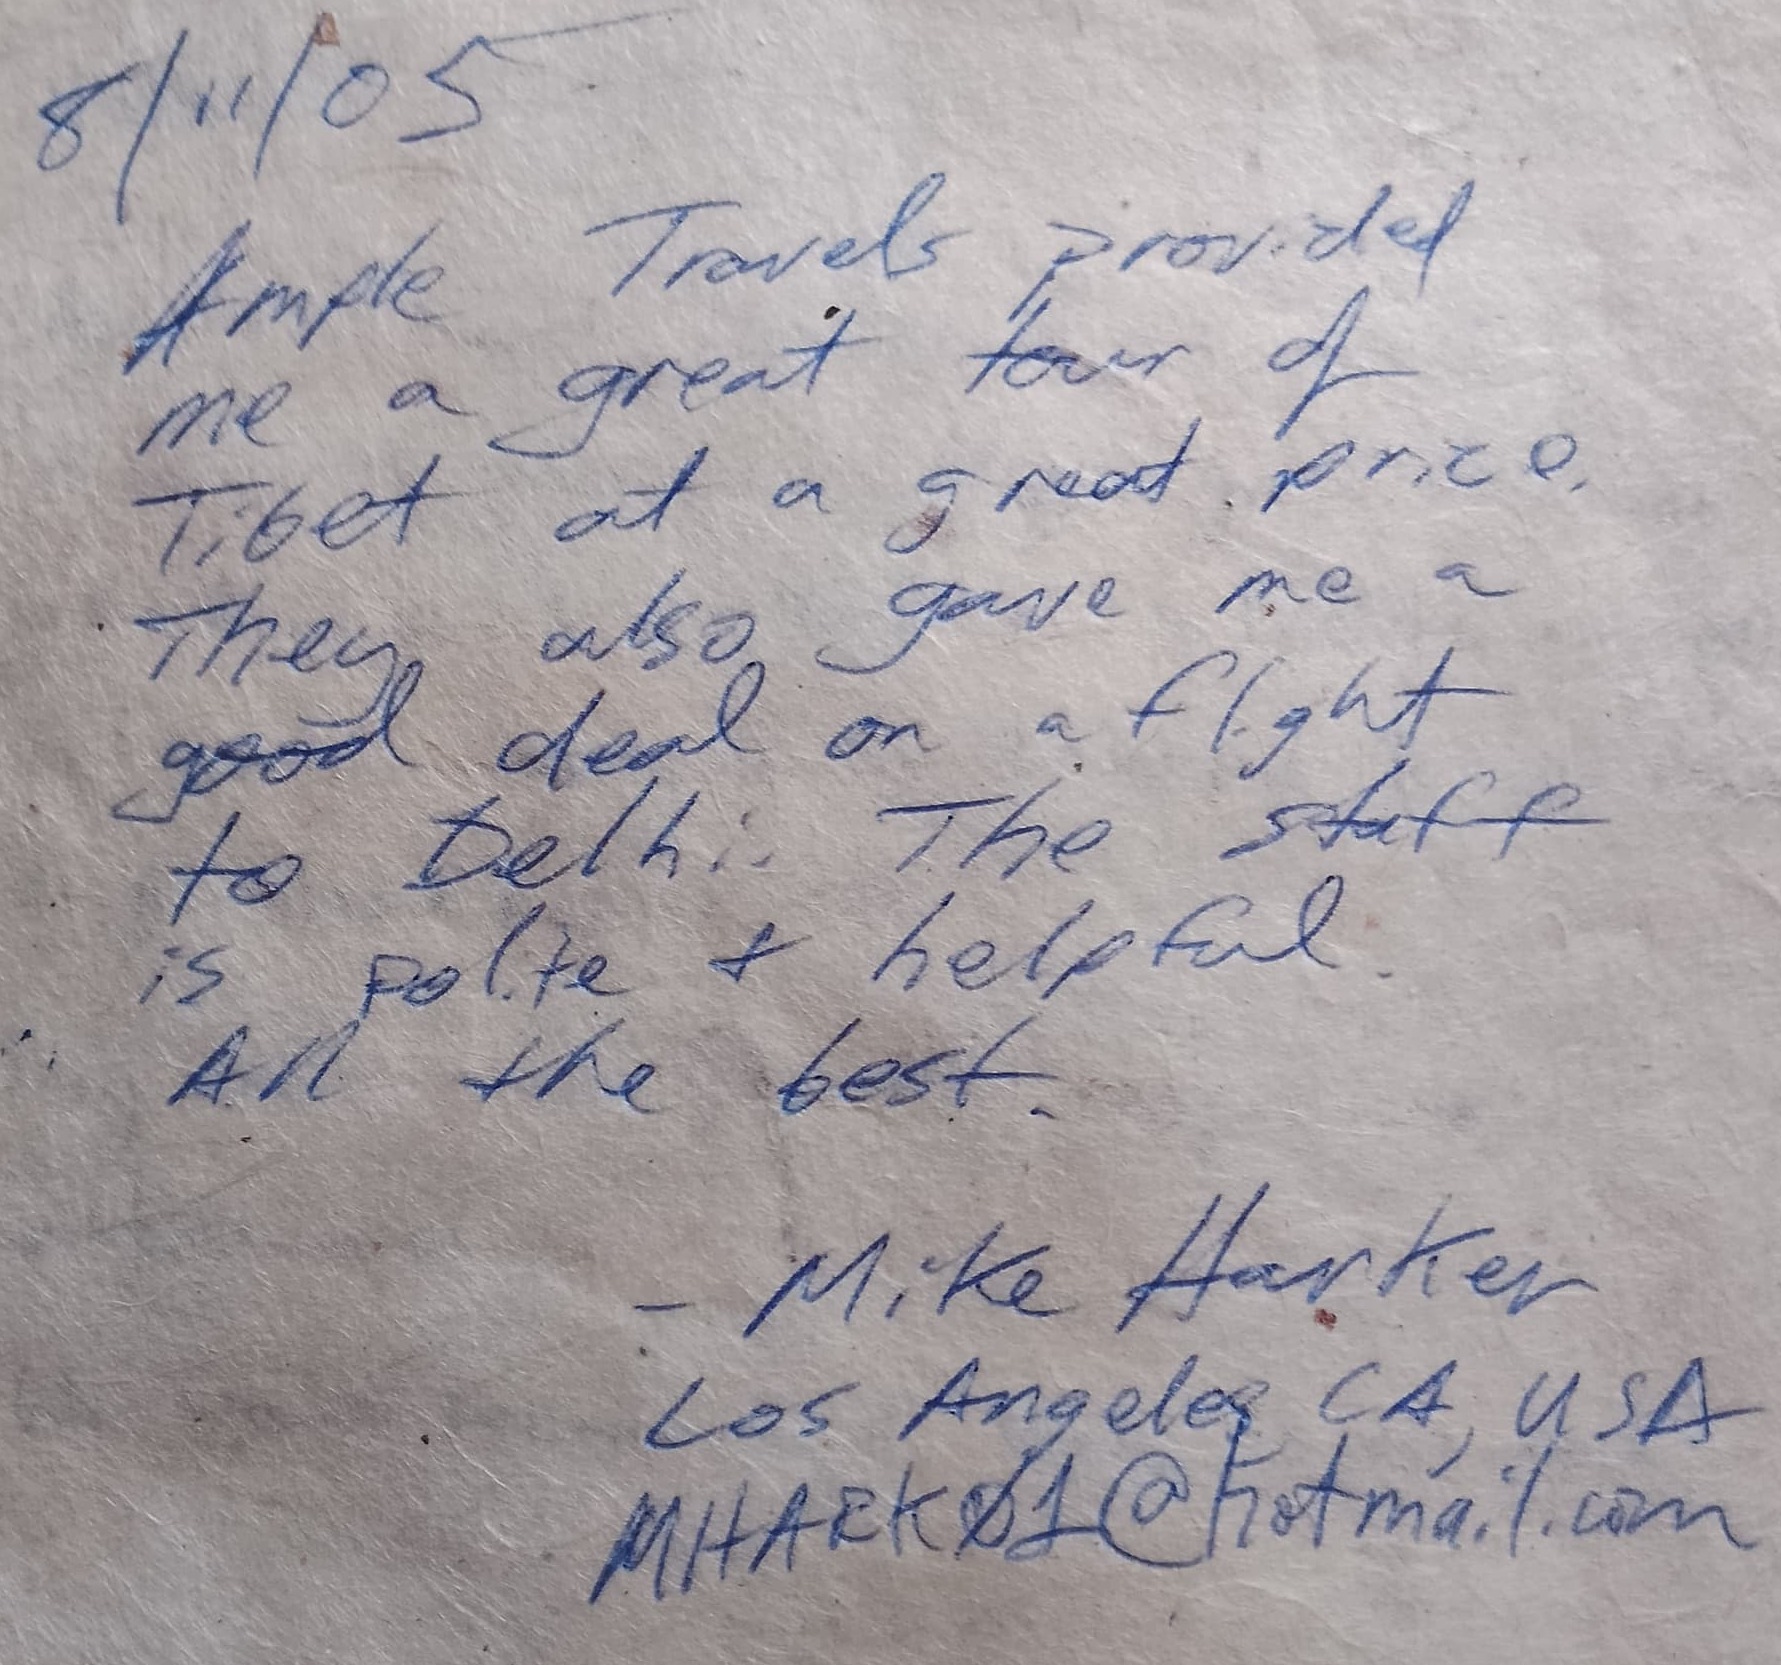 8/11/05
Ample Travels provided
me a great tour of
Tibet at a great price.
They also gave me a
good deal on a flight
to Delhi. The staff
is polite & helpful.
All the best.
- Mike Harker
Los Angeles CA, USA
MHARK01@hotmail.com